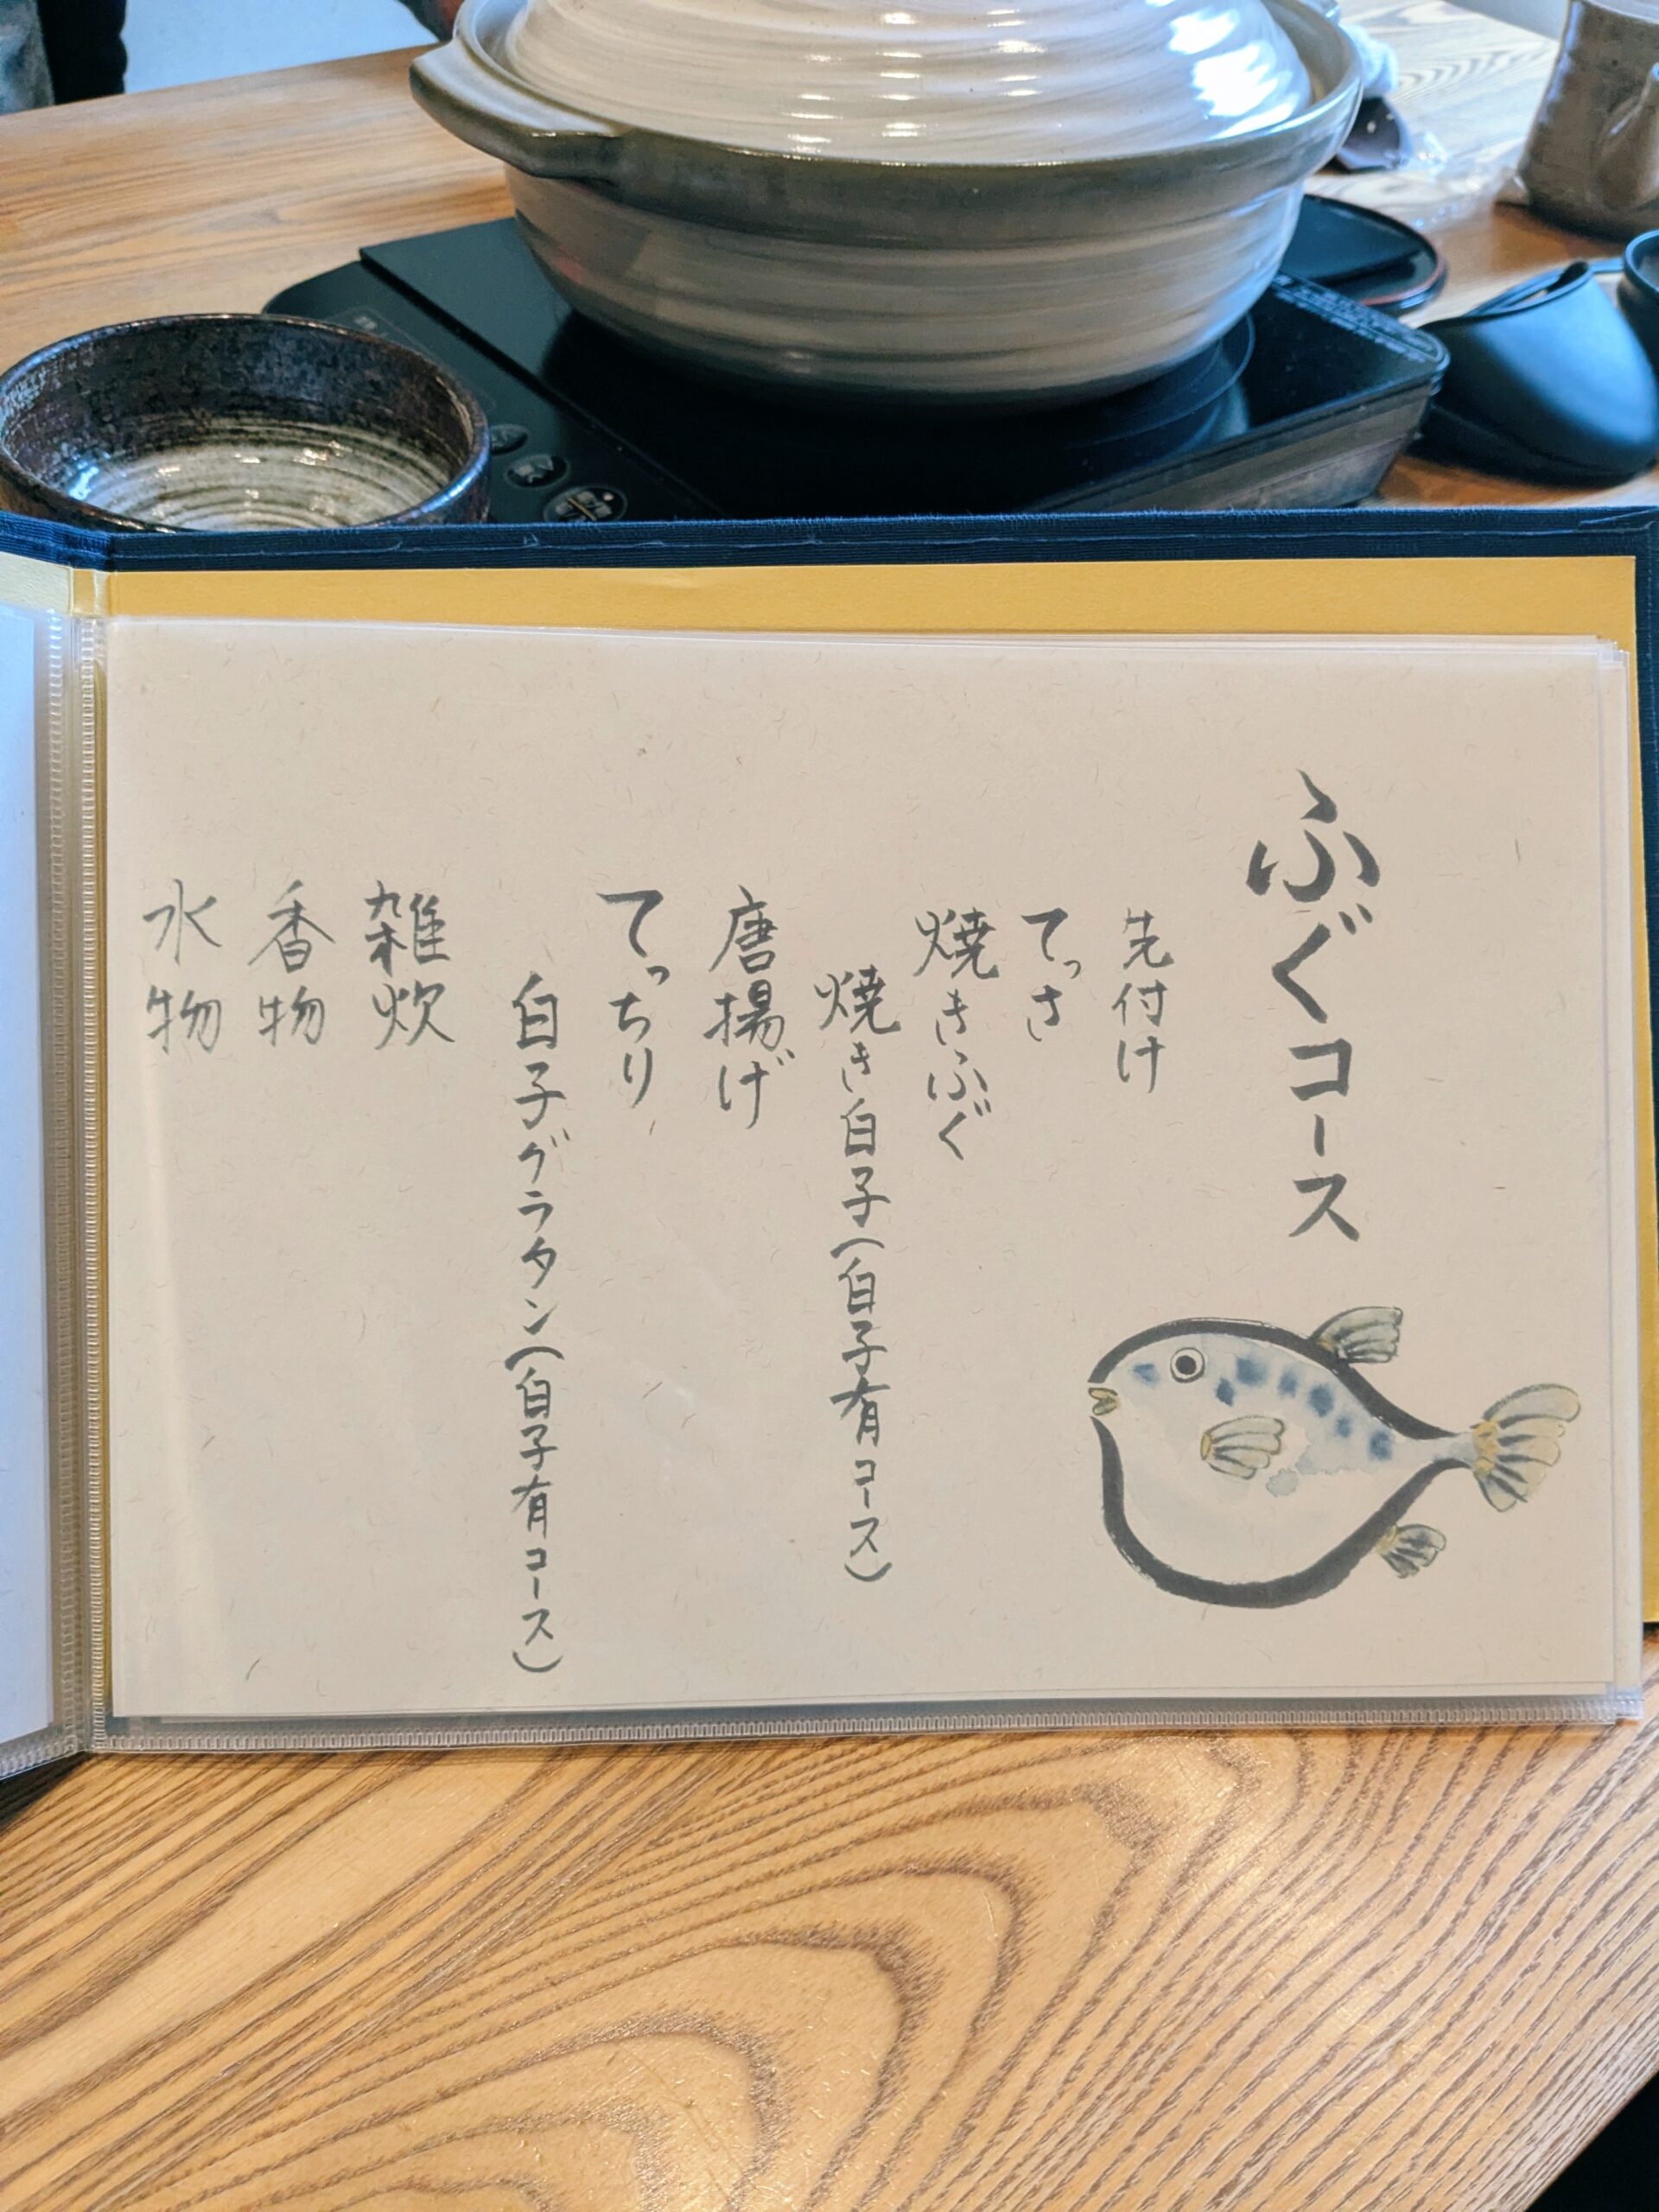 ふぐコース
先付け
てっさ
焼きふぐ
焼き白子(白子有コース)
唐揚げ
てっちり
白子グラタン(白子有コース)
雑炊
香物
水物